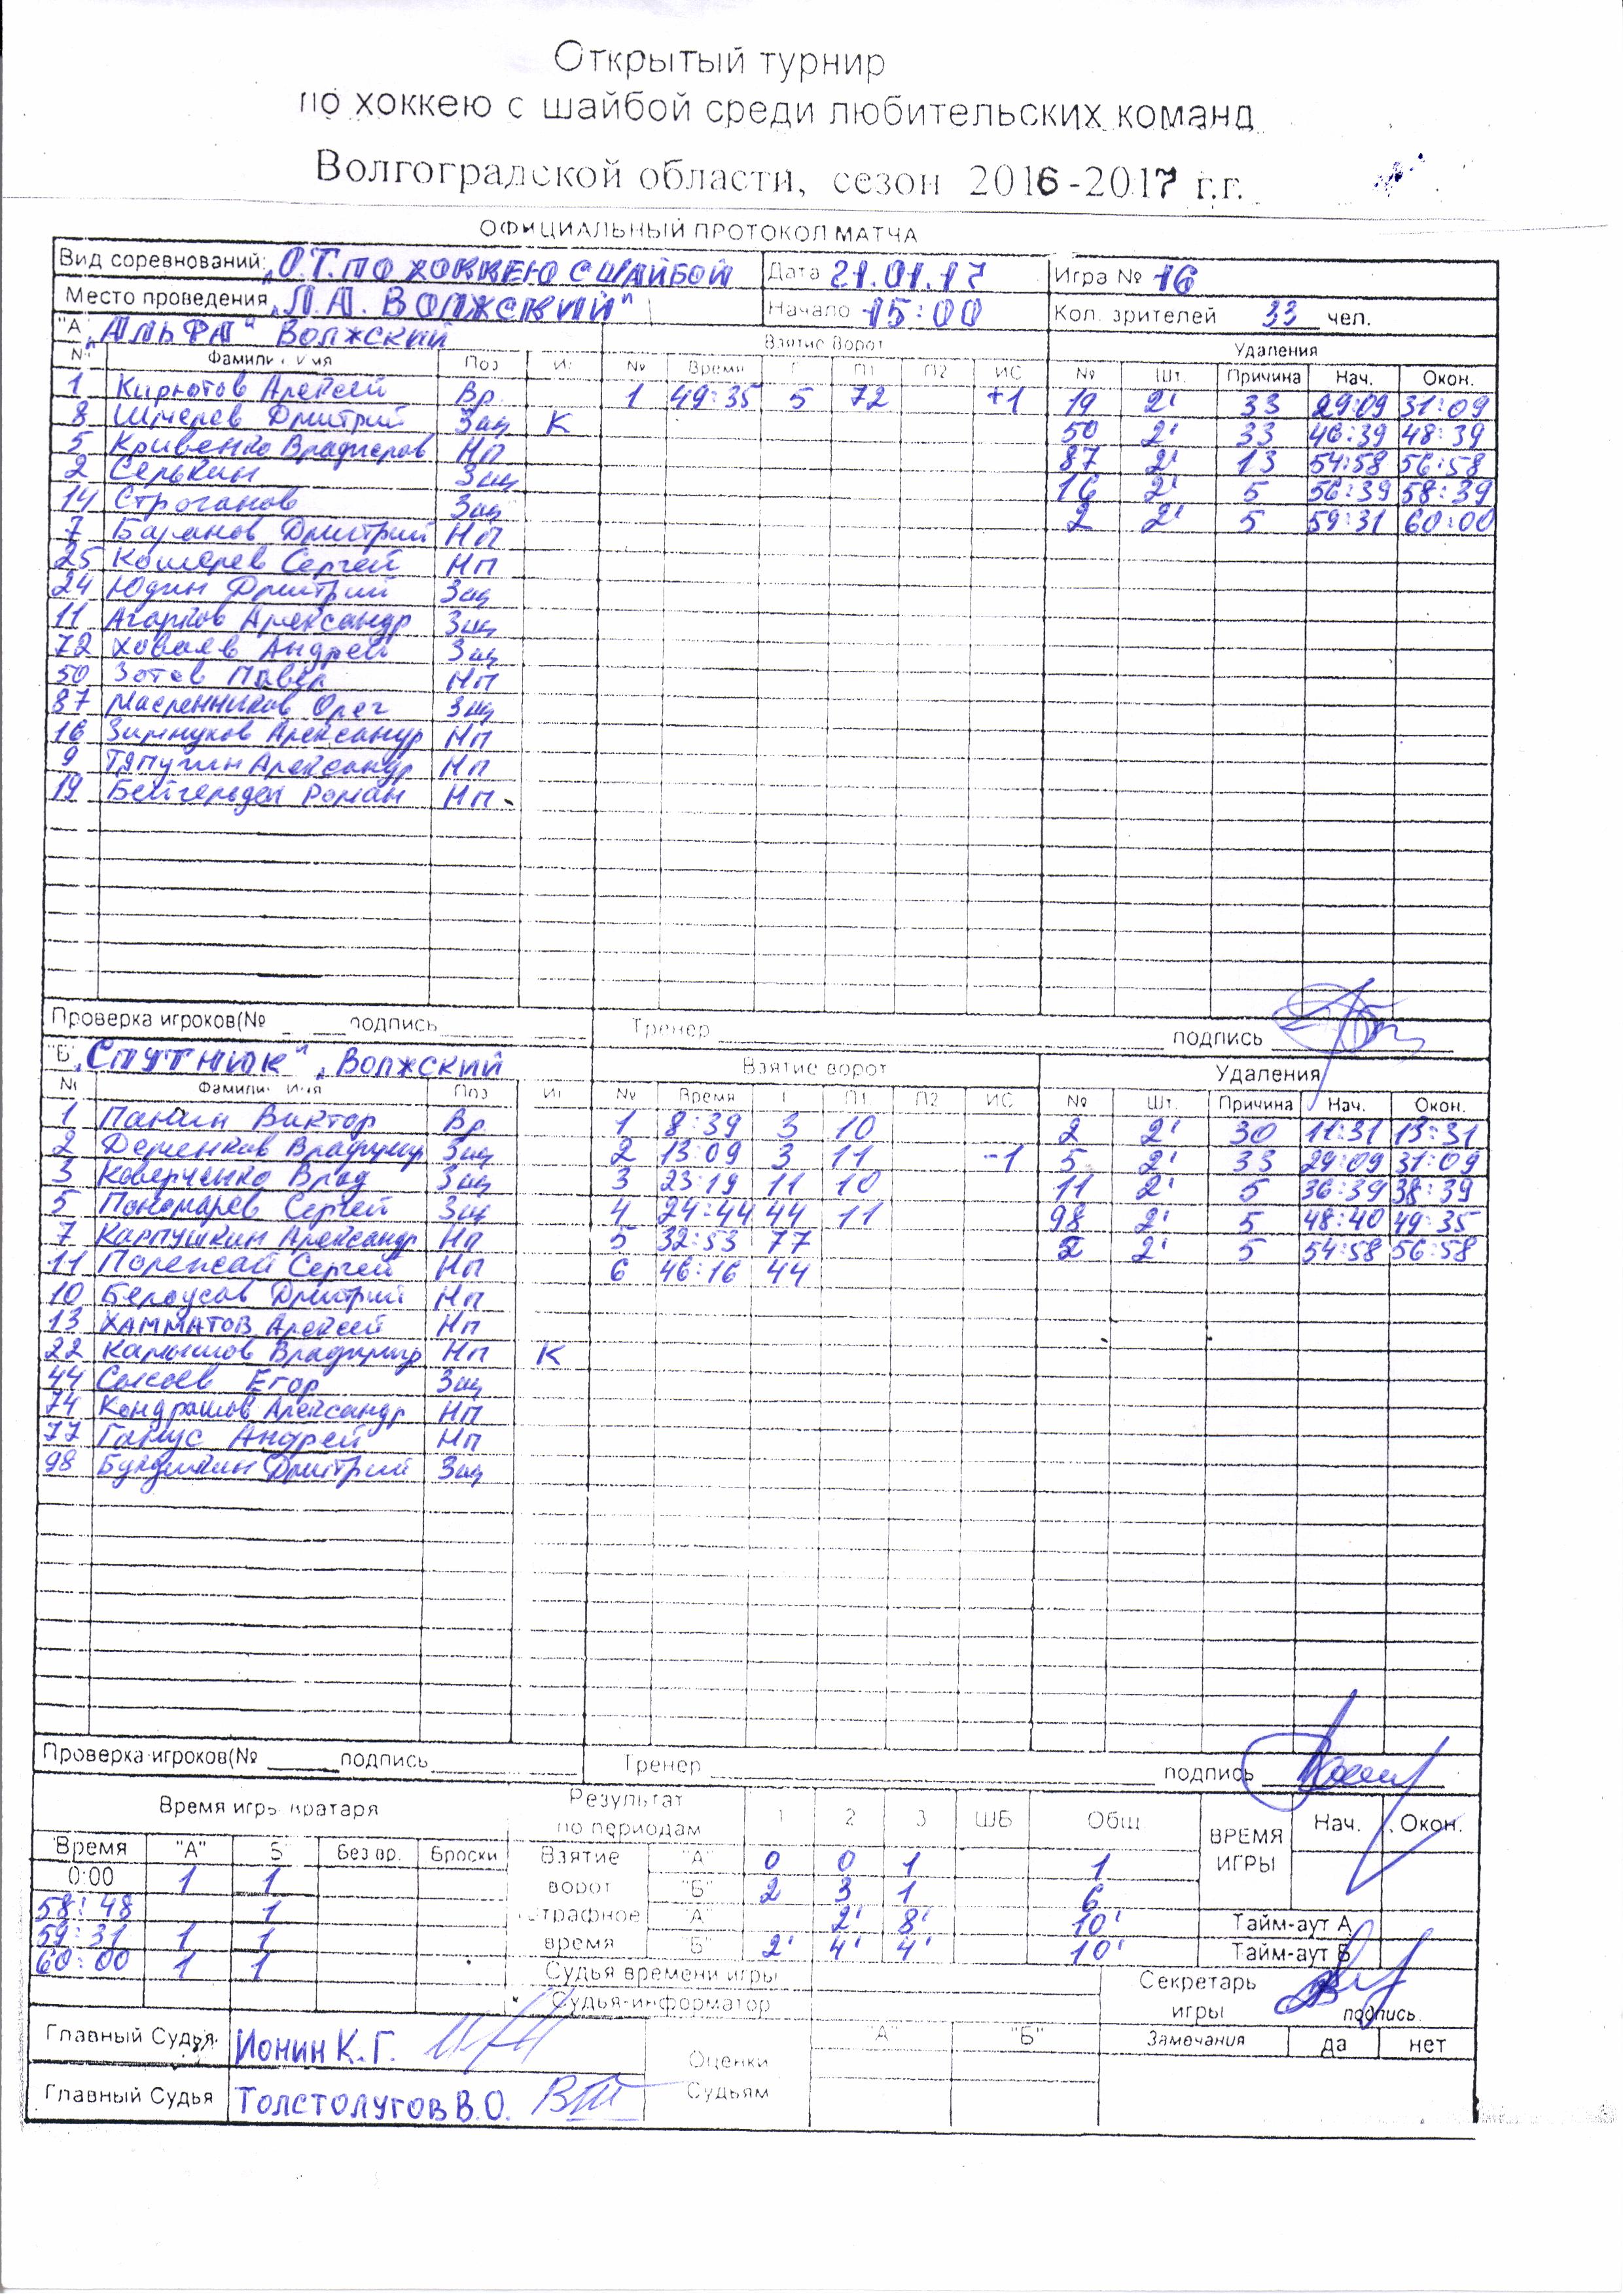 Открытый турнир
по хоккею с шайбой среди любительских команд
Волгоградской области, сезон 2016-2017 г.г.
ОФИЦИАЛЬНЫЙ ПРОТОКОЛ МАТЧА
Вид соревнований: "О.Т. ПО ХОККЕЮ С ШАЙБОЙ Дата 21.01.17 Игра № 16
Место проведения "Л.А. ВОЛЖСКИЙ" Начало 15:00 Кол. зрителей 33 чел.
"А "АЛЬФА" ВОЛЖСКИЙ Взятие ворот Удаления
№ Фамилия Имя Поз И № Время Г П1 П2 ИС № Шт. Причина Нач. Окон.
1 Алексей Вр 1 49:35 5 72 +1 19 2' 33 29:09 31:09
8 Дмитрий Защ К 50 2' 33 46:39 48:39
5 Кривенко Нп 87 2' 13 54:58 56:58
2 Серькин Защ 16 2' 5 56:39 58:39
14 Строганов Защ 2 2' 5 59:31 60:00
7 Баранов Дмитрий Нп
25 Кошерев Сергей Нп
24 Юдин Дмитрий Защ
11 Агарков Александр Защ
72 Ховаев Андрей Защ
50 Зотов Павел Нп
87 Масленников Олег Защ
16 Александр Нп
9 Тяпугин Александр Нп
19 Роман Нп
Проверка игроков(№ подпись Тренер подпись
"Б "СПУТНИК", ВОЛЖСКИЙ Взятие ворот Удаления
№ Фамилия Имя Поз И № Время Г П1 П2 ИС № Шт. Причина Нач. Окон.
1 Панин Виктор Вр 1 8:39 3 10 2 2' 30 11:31 13:31
2 Деменков Владимир Защ 2 13:09 3 11 -1 5 2' 33 29:09 31:09
3 Коверченко Влад Защ 3 23:19 11 10 11 2' 5 36:39 38:39
5 Пономарев Сергей Защ 4 24:44 44 11 98 2' 5 48:40 49:35
7 Карпушкин Александр Нп 5 32:53 77 2 2' 5 54:58 56:58
11 Полежай Сергей Нп 6 46:16 44
10 Белоусов Дмитрий Нп
13 ХАММАТОВ Алексей Нп
22 Камышов Владимир Нп К
44 Егор Защ
74 Кондрашов Александр Нп
77 Ганус Андрей Нп
98 Дмитрий Защ
Проверка игроков(№ подпись Тренер подпись
Время игры вратаря Результат по периодам 1 2 3 ШБ Общ ВРЕМЯ ИГРЫ Нач. Окон.
Время "А" Б" Без вр. Броски Взятие "А" 0 0 1 1
0:00 1 1 ворот "Б" 2 3 1 6
58:48 1 Штрафное "А" 2' 8' 10' Тайм-аут А
59:31 1 1 время "Б" 2' 4' 4' 10' Тайм-аут Б
60:00 1 1 Судья времени игры Секретарь
Судья-информатор игры подпись
Главный Судья ИОНИН К.Г. Оценки "А" "Б" Замечания да нет
Главный Судья ТОЛСТОЛУГОВ В.О. Судьям